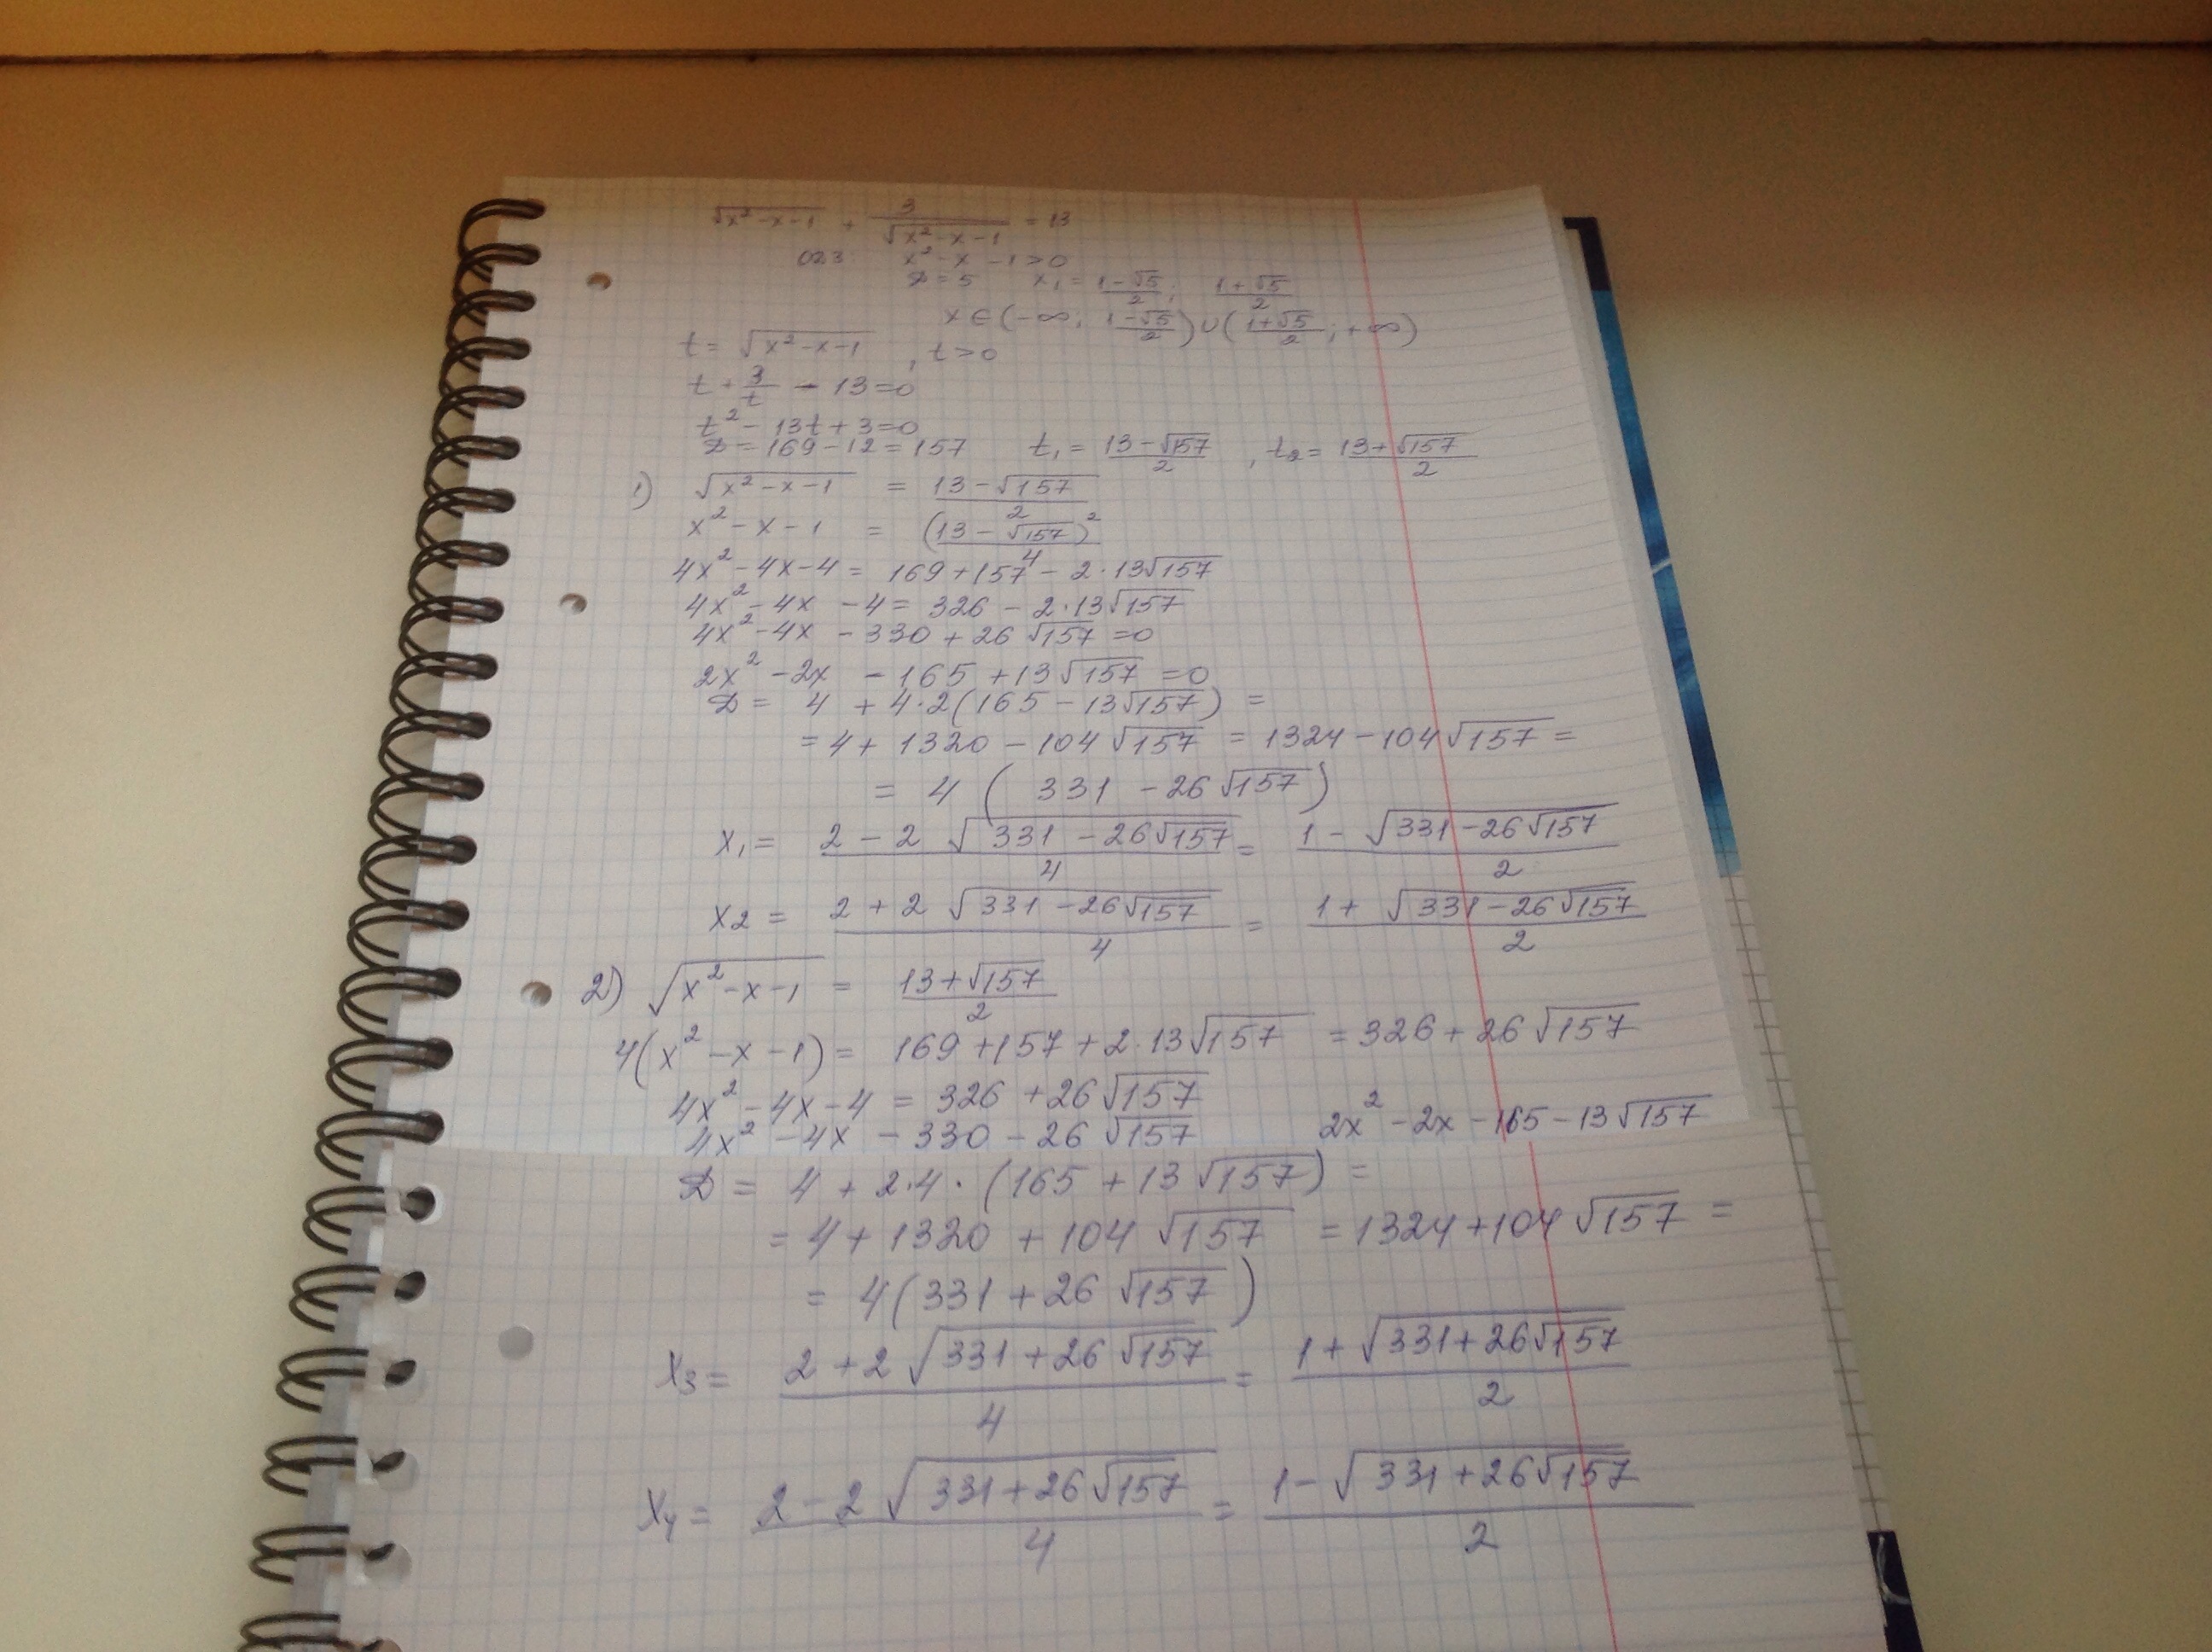 √(x² - x - 1) + 3/√(x² - x - 1) = 13
ОДЗ x² - x - 1 > 0
D = 5 x₁ = (1 - √5)/2 ; (1 + √5)/2
x ∈ (-∞; (1 - √5)/2) ∪ ((1 + √5)/2 ; +∞)
t = √(x² - x - 1) , t > 0
t + 3/t - 13 = 0
t² - 13t + 3 = 0
D = 169 - 12 = 157 t₁ = (13 - √157)/2 , t₂ = (13 + √157)/2
1) √(x² - x - 1) = (13 - √157)/2
x² - x - 1 = (13 - √157)²/4
4x² - 4x - 4 = 169 + 157 - 2·13√157
4x² - 4x - 4 = 326 - 2·13√157
4x² - 4x - 330 + 26√157 = 0
2x² - 2x - 165 + 13√157 = 0
D = 4 + 4·2(165 - 13√157) =
= 4 + 1320 - 104√157 = 1324 - 104√157 =
= 4(331 - 26√157)
x₁ = (2 - 2√(331 - 26√157))/4 = (1 - √(331 - 26√157))/2
x₂ = (2 + 2√(331 - 26√157))/4 = (1 + √(331 - 26√157))/2
2) √(x² - x - 1) = (13 + √157)/2
4(x² - x - 1) = 169 + 157 + 2·13√157 = 326 + 26√157
4x² - 4x - 4 = 326 + 26√157
4x² - 4x - 330 - 26√157 2x² - 2x - 165 - 13√157
D = 4 + 2·4·(165 + 13√157) =
= 4 + 1320 + 104√157 = 1324 + 104√157 =
= 4(331 + 26√157)
x₃ = (2 + 2√(331 + 26√157))/4 = (1 + √(331 + 26√157))/2
x₄ = (2 - 2√(331 + 26√157))/4 = (1 - √(331 + 26√157))/2